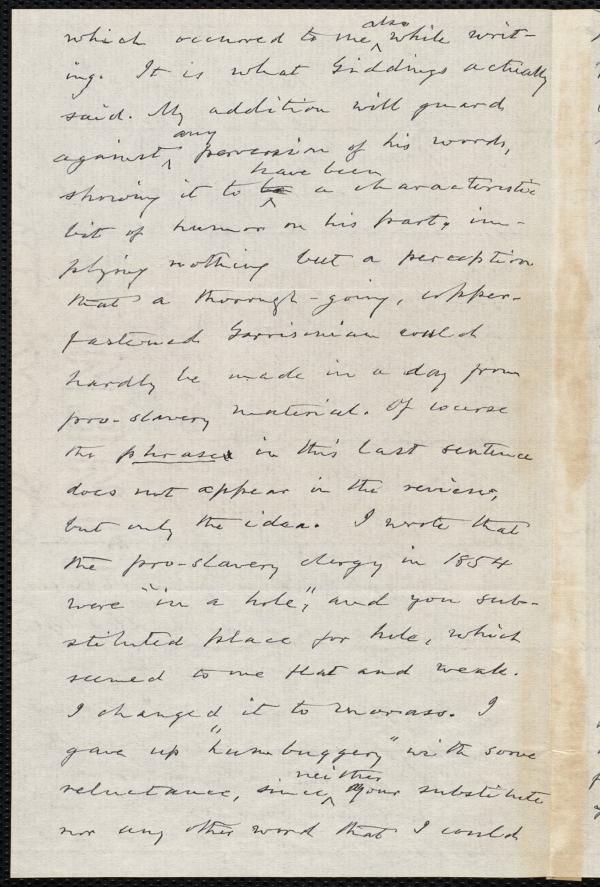 which occurred to me also while writ-
ing. It is what Giddings actually
said. My addition will guard
against any perversion of his words,
showing it to have been a characteristic
bit of humor on his part, im-
plying nothing but a perception
that a thorough-going, copper-
fastened Garrisonian could
hardly be made in a day from
pro-slavery material. Of course
the phrase in this last sentence
does not appear in the review,
but only the idea. I wrote that
the pro-slavery clergy in 1854
were "in a hole", and you sub-
stituted place for hole, which
seemed to me flat and weak.
I changed it to morass. I
gave up "humbuggery" with some
reluctance, since neither your substitute
nor any other word that I could